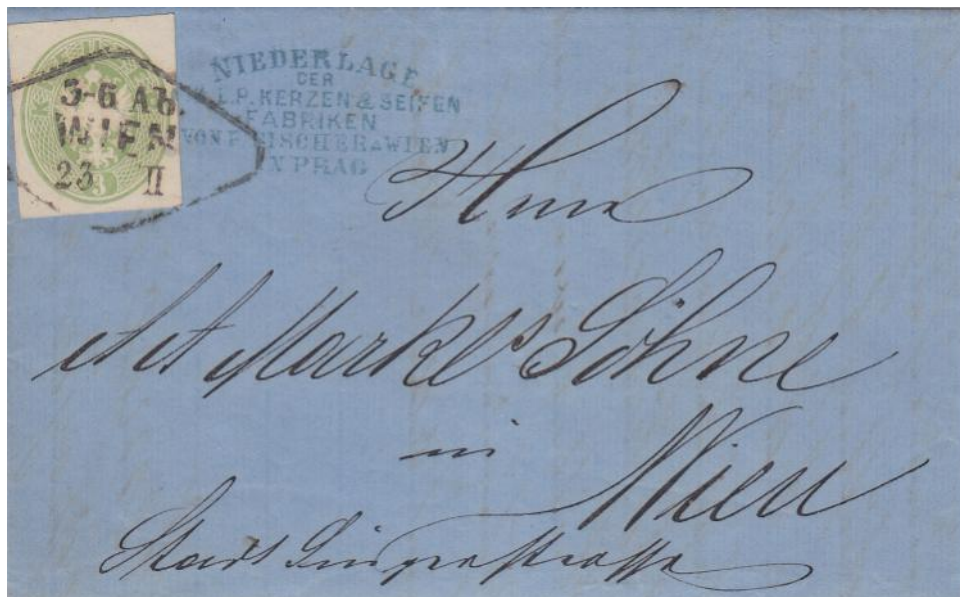 3-6 Ab.
WIEN
23 II
3
NIEDERLAGE
DER
L.P. KERZEN & SEIFEN
FABRIKEN
VON F. FISCHER a. WIEN
IN PRAG
Herrn
Markl's Söhne
in Wien
Stadt Singerstrasse